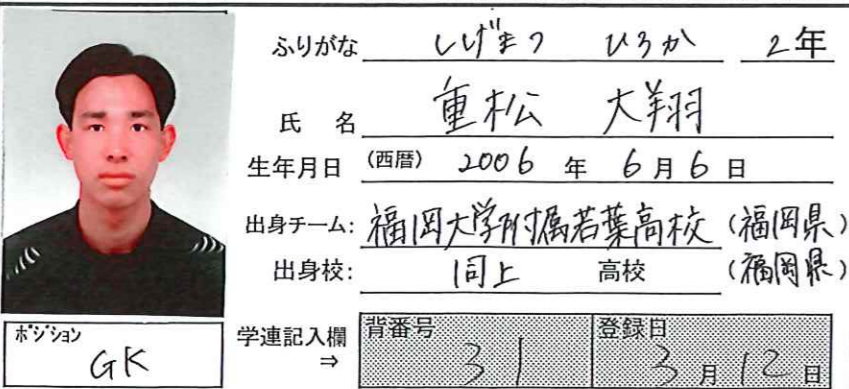 ふりがな しげまつ ひろか 2年
氏 名 重松 大翔
生年月日 (西暦) 2006 年 6月 6日
出身チーム: 福岡大学附属若葉高校 (福岡県)
出身校: 同上 高校 (福岡県)
ポジション GK
学連記入欄 ⇒ 背番号 31 登録日 3月12日